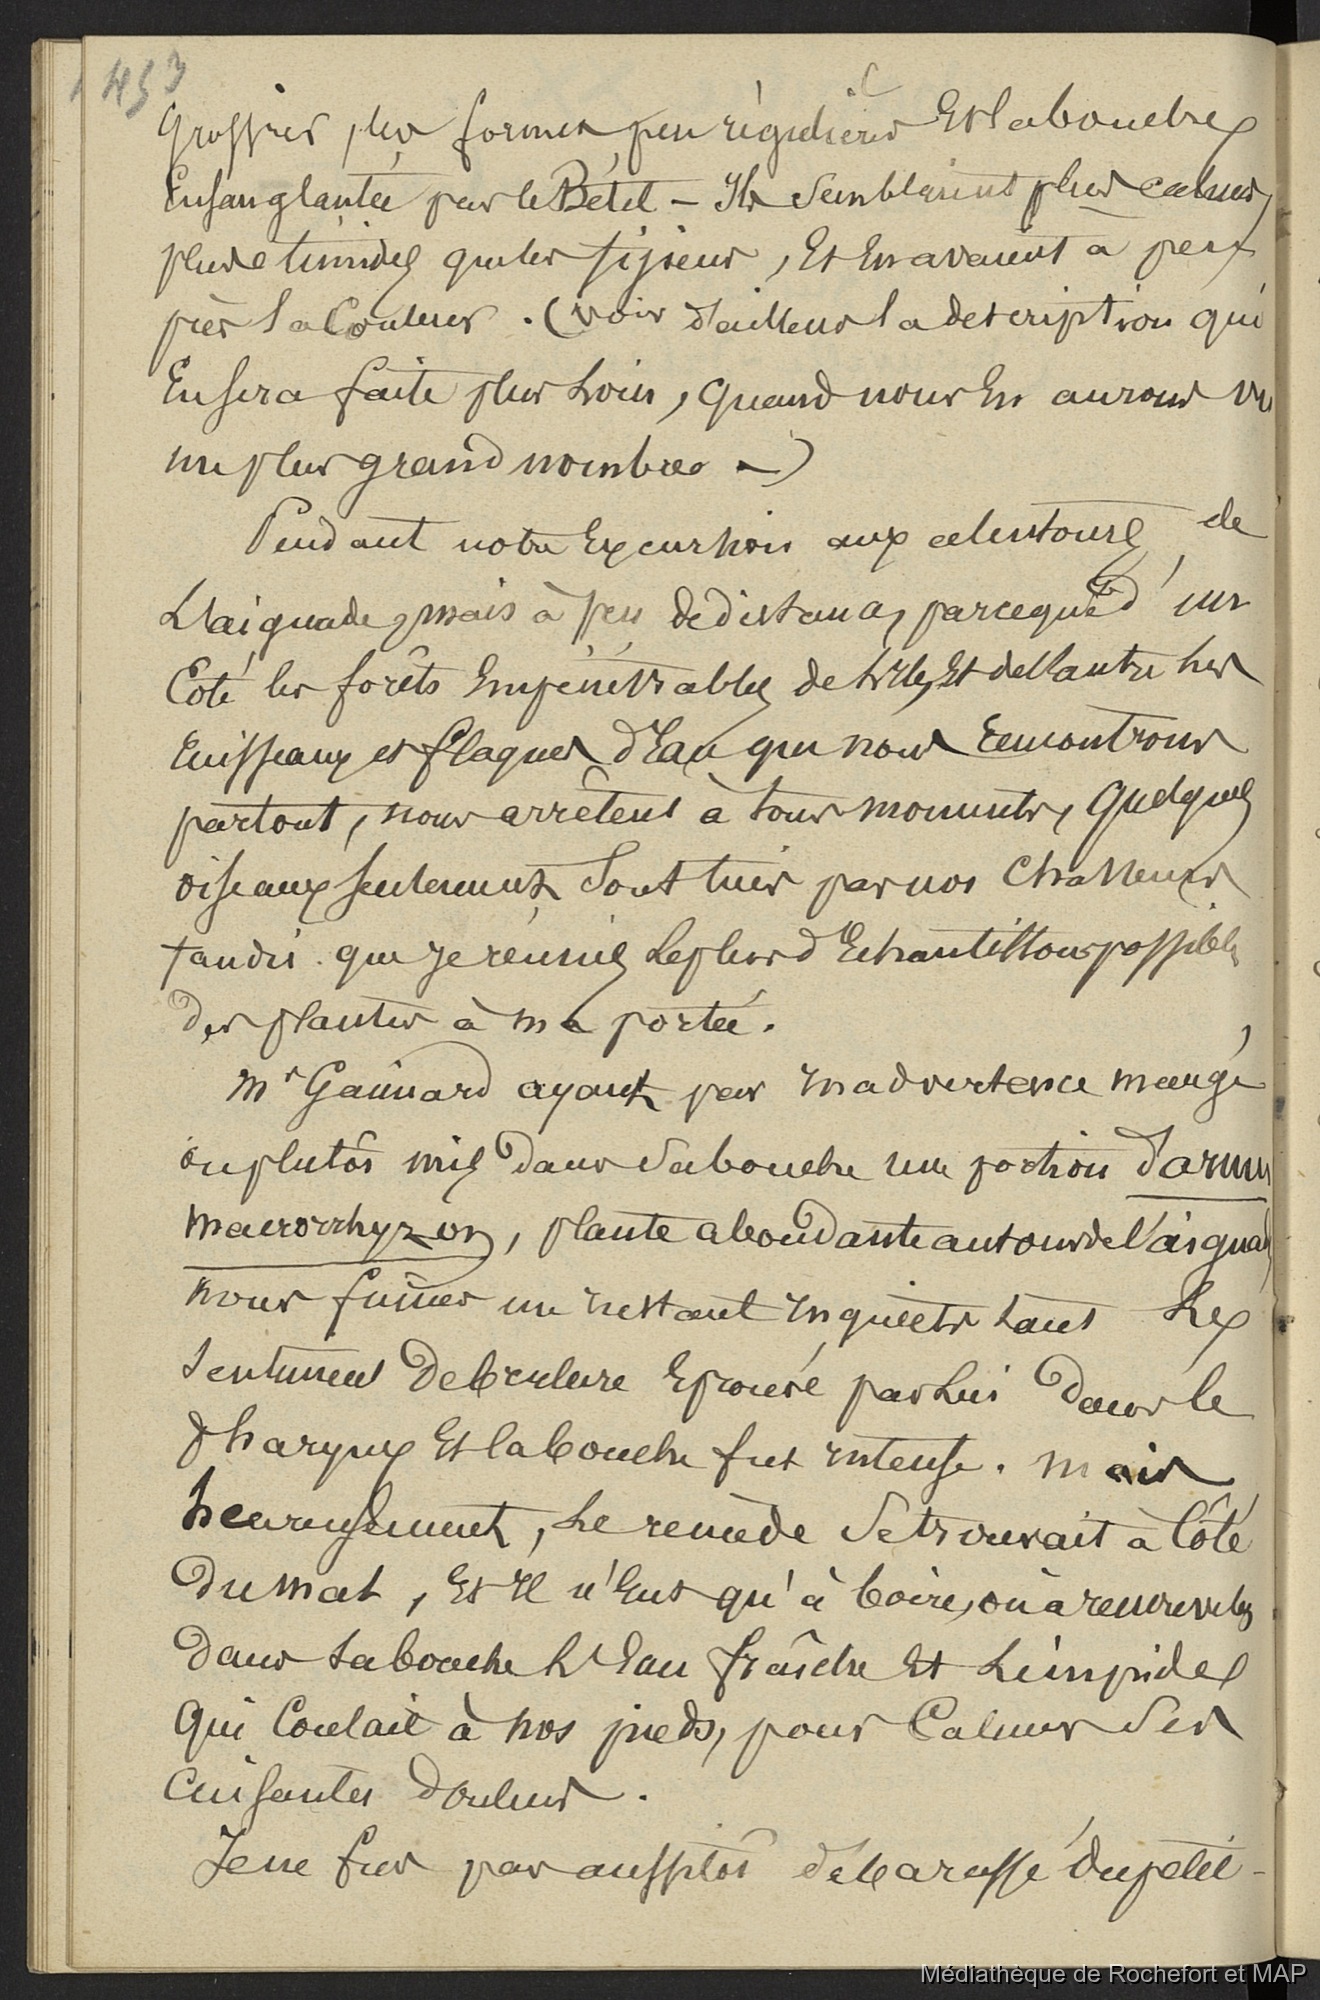 453
Grossies, les formes peu régulières Et la bouche
Ensanglantée par le Bétel – Ils semblaient plus calmes,
plus timides que les fijiens, Et En avaient à peu
près la Couleur. (voir d'ailleurs la description qui
En sera faite plus loin, quand nous En aurons vu
un plus grand nombre –)
Pendant notre Excursion aux alentours de
L'aiguade, mais à peu de distance, parcequé d'un
Coté les forêts Empénétrables de L'Ile, Et de l'autre les
ruisseaux et flaques d'Eau que nous rencontrons
partout, nous arrêtent à tous moments, quelques
oiseaux seulement sont tués par nos chasseurs
tandis que je réunis le plus d'Echantillons possibles
des plantes à ma portée.
Mr Gaimard ayant par Inadvertence mangé
ou plutôt mis dans sa bouche une portion d'arum
macrorrhyzon, plante abondante autour de l'aiguade
nous fûmes un Instant Inquiets tant Le
sentiment de brulure Eprouvé par Lui dans le
Pharynx Et la bouche fut Intense. Mais
heureusement, Le remède se trouvait à Côté
du mal, Et Il n'Eut qu'à boire, ou à
dans sa bouche L'Eau fraîche Et Limpide
qui Coulait à nos pieds, pour Calmer ses
Cuisantes douleurs.
Je ne fus pas aussitôt débarassé du petit-
Médiathèque de Rochefort et MAP